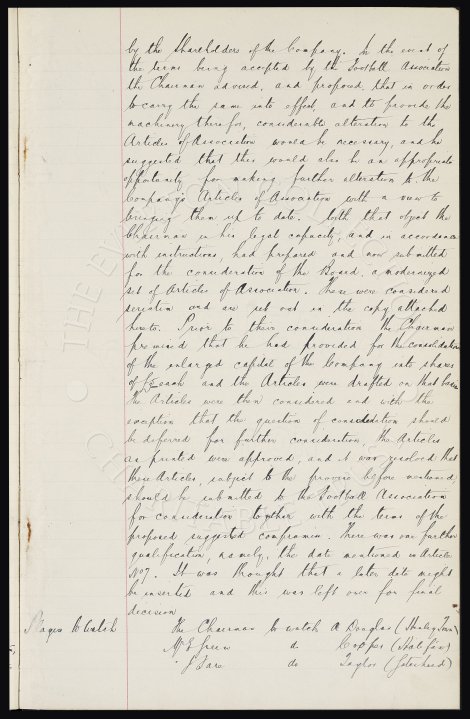 by the Shareholders of the Company. In the event of
the terms being accepted by the Football Association
the Chairman advised, and proposed, that in order
to carry the same into effect, and to provide the
machinery therefor, considerable alteration to the
Articles of Association would be necessary, and he
suggested that this would also be an appropriate
opportunity for making further alteration to the
Company's Articles of Association with a view to
bringing them up to date. With that object the
Chairman in his legal capacity, and in accordance
with instructions, had prepared and now submitted
for the consideration of the Board, a modernized
set of Articles of Association. These were considered
seriatim and are set out in the copy attached
hereto. Prior to their consideration the Chairman
premised that he had provided for the consolidation
of the enlarged capital of the Company into shares
of each and the Articles were drafted on that basis
The Articles were then considered and with the
exception that the question of consolidation should
be deferred for further consideration, the Articles
as printed were approved, and it was resolved that
these Articles, subject to the proviso before mentioned,
should be submitted to the Football Association
for consideration together with the terms of the
proposed suggested compromise. There was one further
qualification, namely, the date mentioned in Article
No 7. It was thought that a later date might
be inserted and this was left over for final
decision
Players to Watch The Chairman to watch A Douglas (Stanley)
Mr Green do Copper (Halifax)
" J do Taylor (Gateshead)
THE EV
CH